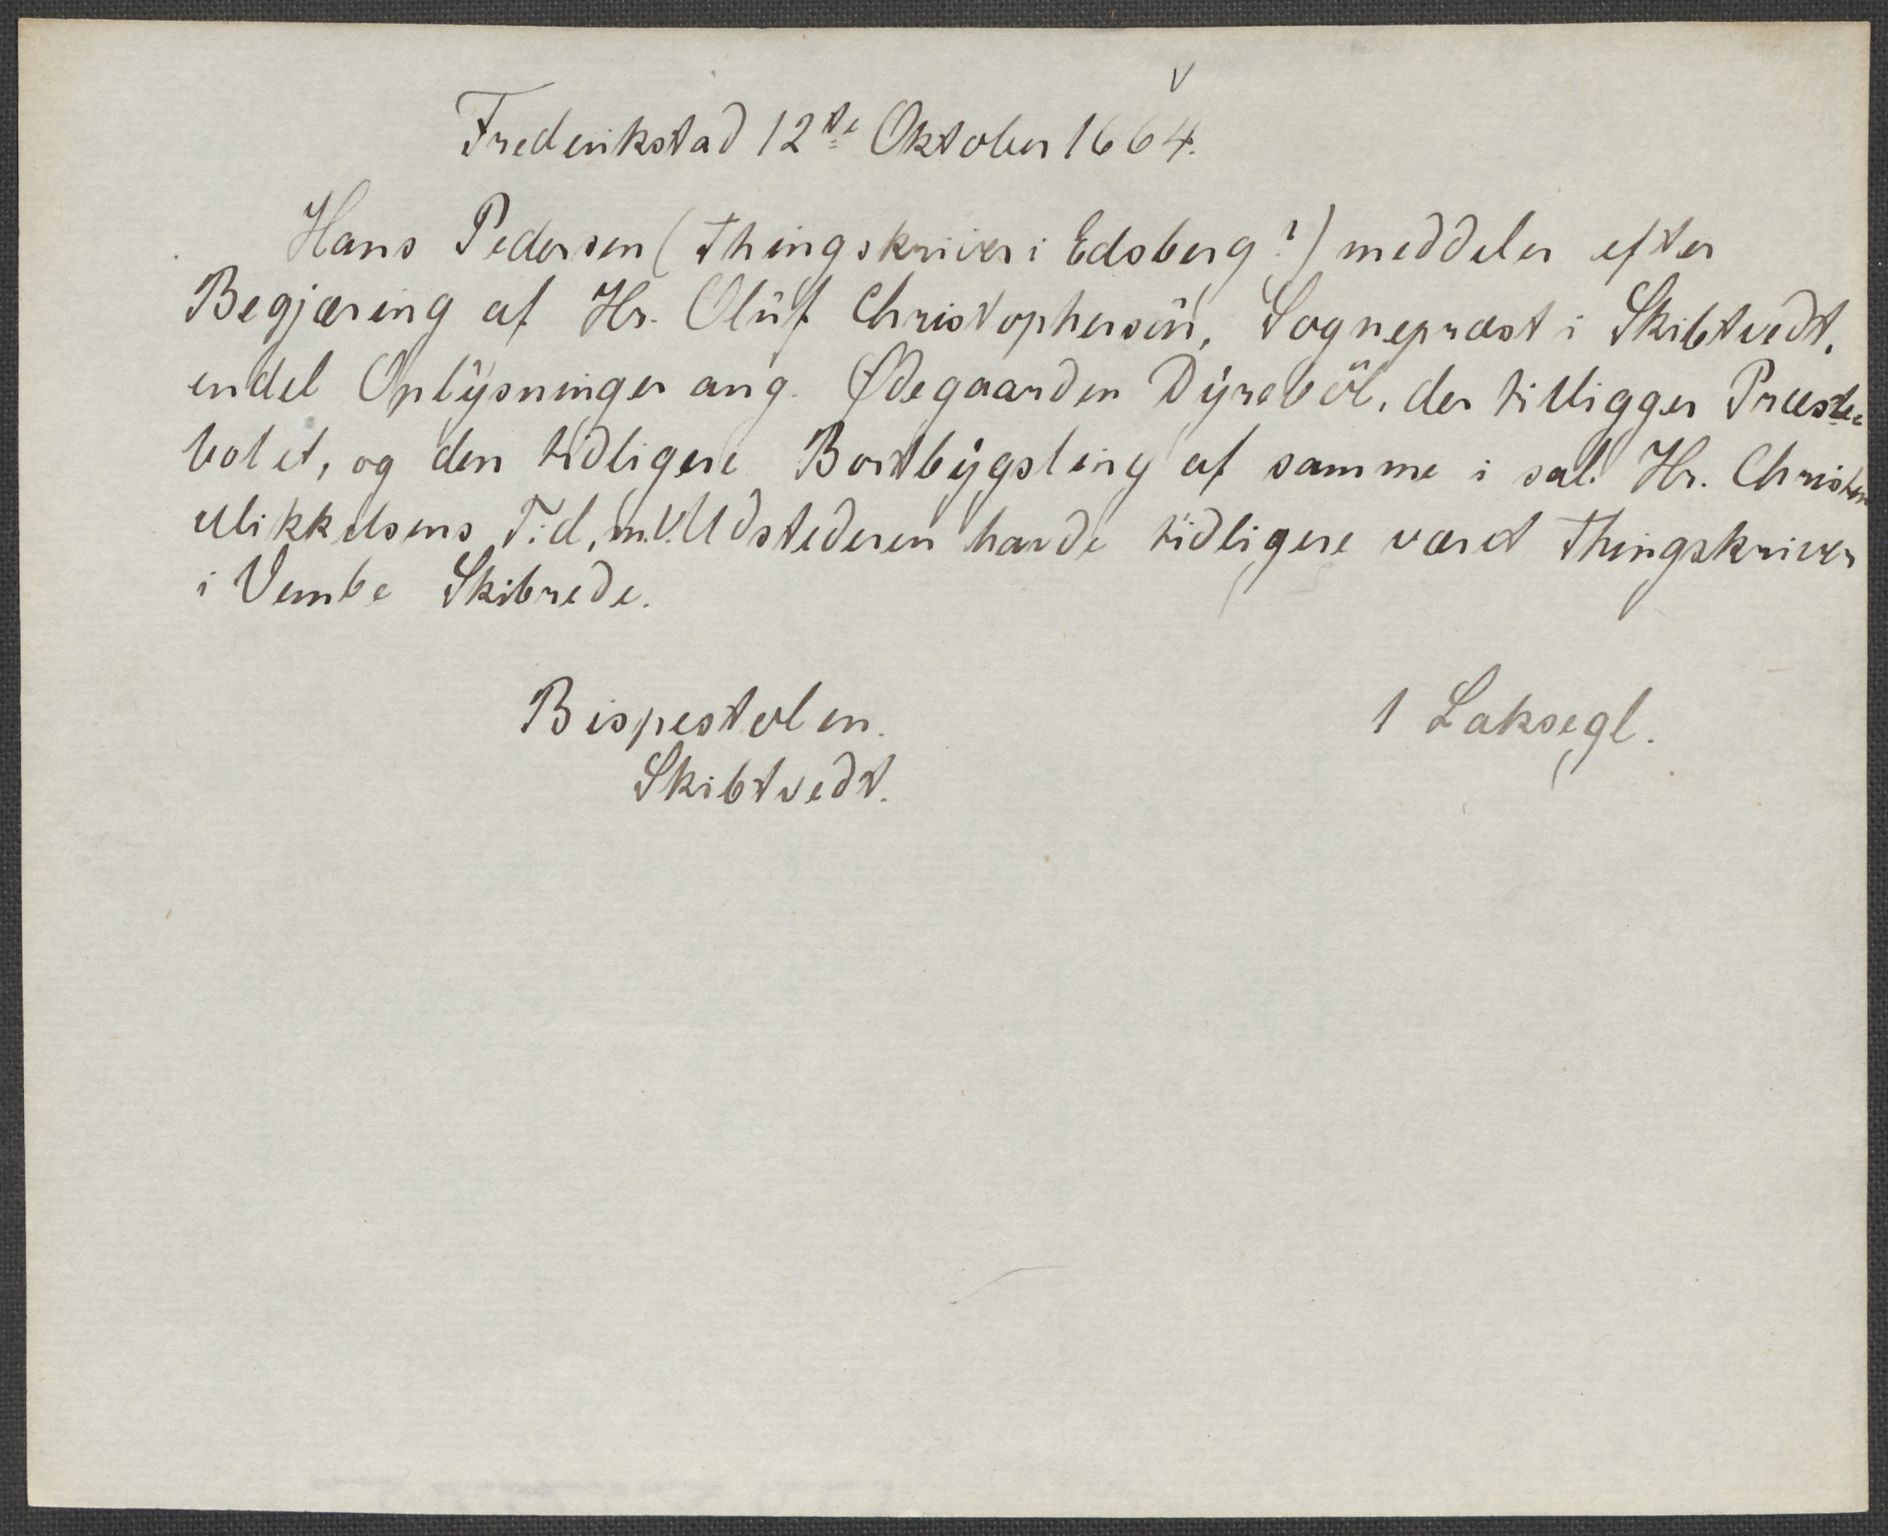 Frederikstad 12te Oktober 1664.
Hans Pedersen (Thingskriver i Edsberg?) meddeler efter
Begjæring af Hr. Oluf Christophersøn, Sognepræst i Skibtvedt,
endel Oplysninger ang. Ødegaarden Dyrebøl, der tilligger Præste-
bolet, og den tidligere Bortbygsling af samme i sal. Hr. Christen
Mikkelsens Tid, m.V. Udstederen havde tidligere været Thingskriver
i Vembe Skibrede.
Bispestolen. 1 Laksegl.
Skibtvedt.